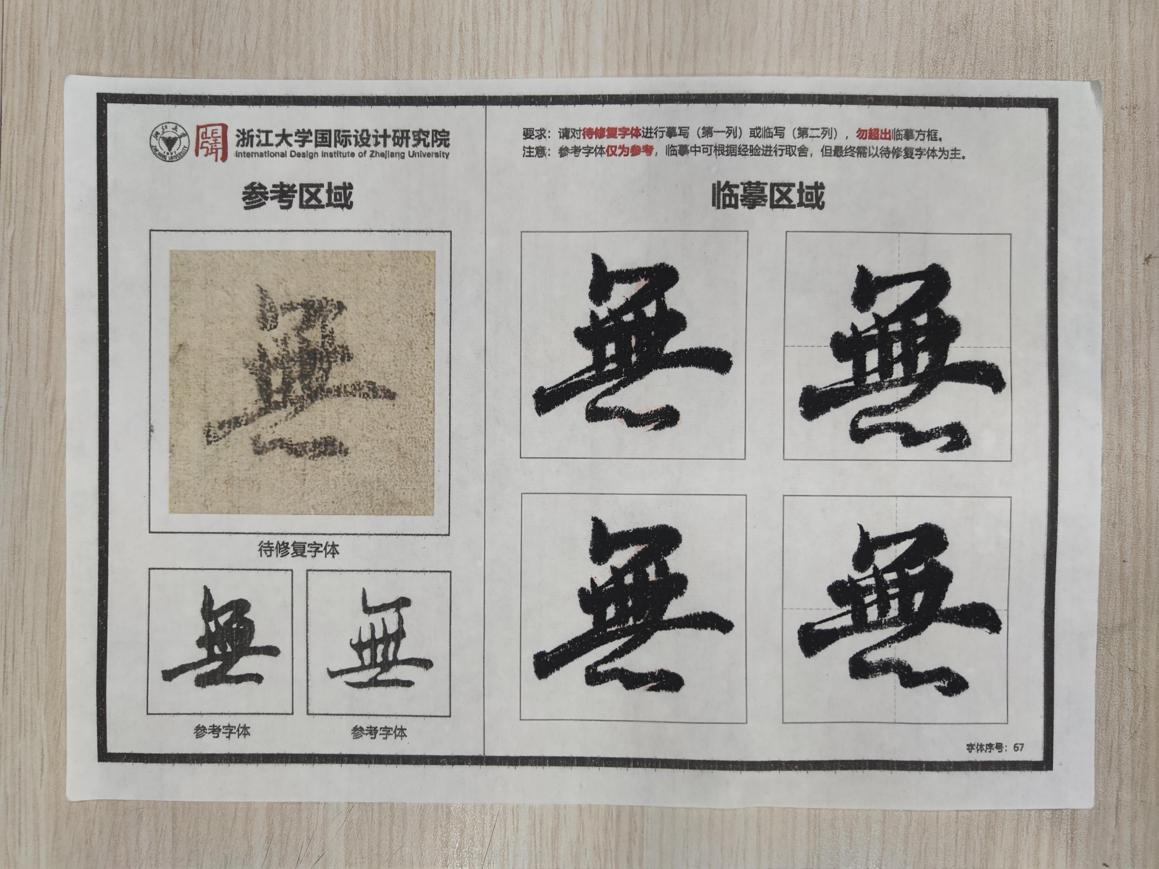 浙江大学国际设计研究院
International Design Institute of Zhejiang University
参考区域
無
待修复字体
無
無
参考字体
参考字体
要求：请对待修复字体进行摹写（第一列）或临写（第二列），勿超出临摹方框。
注意：参考字体仅为参考，临摹中可根据经验进行取舍，但最终需以待修复字体为主。
临摹区域
無
無
無
無
字体序号：67